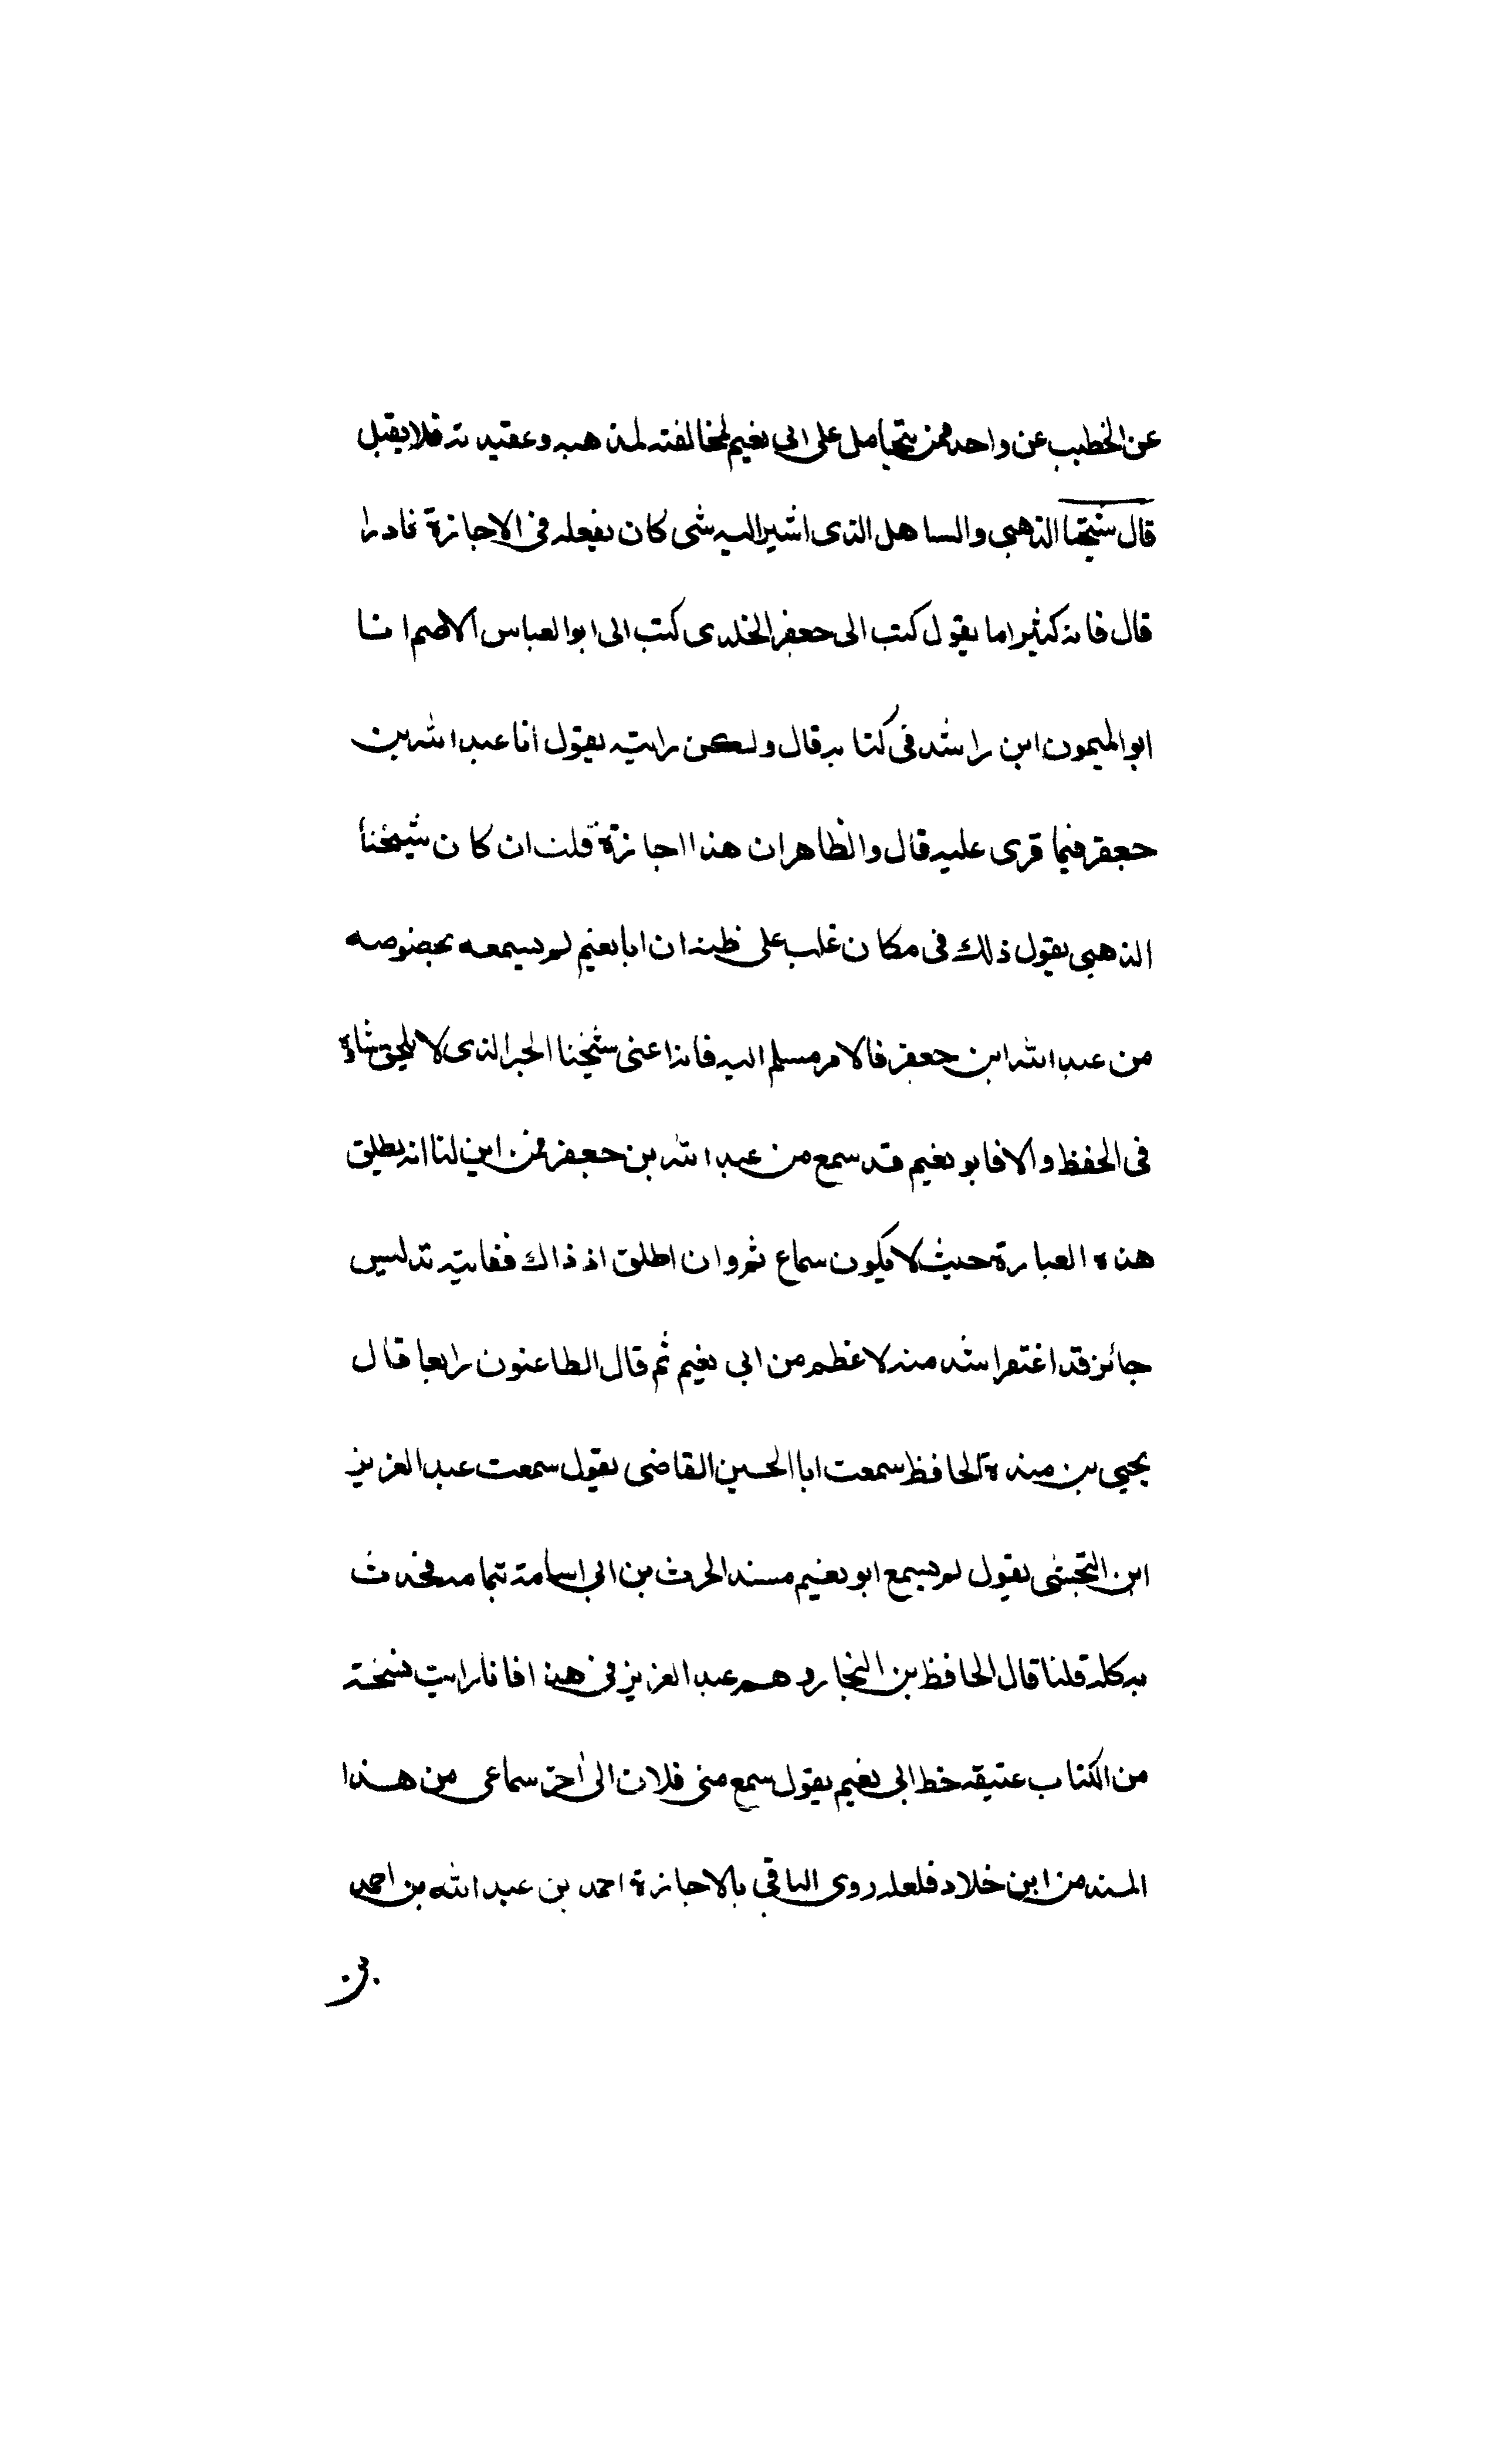 عن الخطيب عن واحد ممن يتحامل على ابى نعيم لمخالفته لمذهبه وعقيدته فلا يقبل
قال شيخنا الذهبى والتساهل الذى اشير اليه شى كان يفعله فى الاجازة نادرا
قال فانه كثيرا ما يقول كتب الى جعفر الخلدى كتب الى ابوالعباس الاصم انا
ابوالميمون ابن راشد فى كتابه قال ولكن رايته يقول انا عبدالله بن
جعفر فيما قرى عليه قال والظاهر ان هذا اجازة قلت ان كان شيخنا
الذهبى يقول ذلك فى مكان غلب على ظنه ان ابا نعيم لم يسمعه بخصوصه
من عبدالله ابن جعفر فالامر مسلم اليه فانه اعنى شيخنا الحبر الذى لا يلحق شاوه
فى الحفظ والا فابو نعيم قد سمع من عبدالله بن جعفر فمن اين لنا انه يطلق
هذه العبارة حيث لا يكون سماع ثم وان اطلق اذ ذاك فغايته تدليس
جائز قد اغتفر اشد منه لاعظم من ابى نعيم ثم قال الطاعنون رابعا قال
يحيى بن منده الحافظ سمعت ابا الحسين القاضى يقول سمعت عبدالعزيز
ابن النخشى يقول لم يسمع ابو نعيم مسند الحرث بن ابى اسامة بتمامه فحدث
به كله قلنا قال الحافظ بن النجار وهم عبدالعزيز فى هذا فانا رايت نسخة
من الكتاب عتيقه خط ابى نعيم يقول سمع منى فلان الى آخر سماعى من هذا
المسند من ابن خلاد فلعله روى الباقى بالاجازة احمد بن عبدالله بن احمد
بن